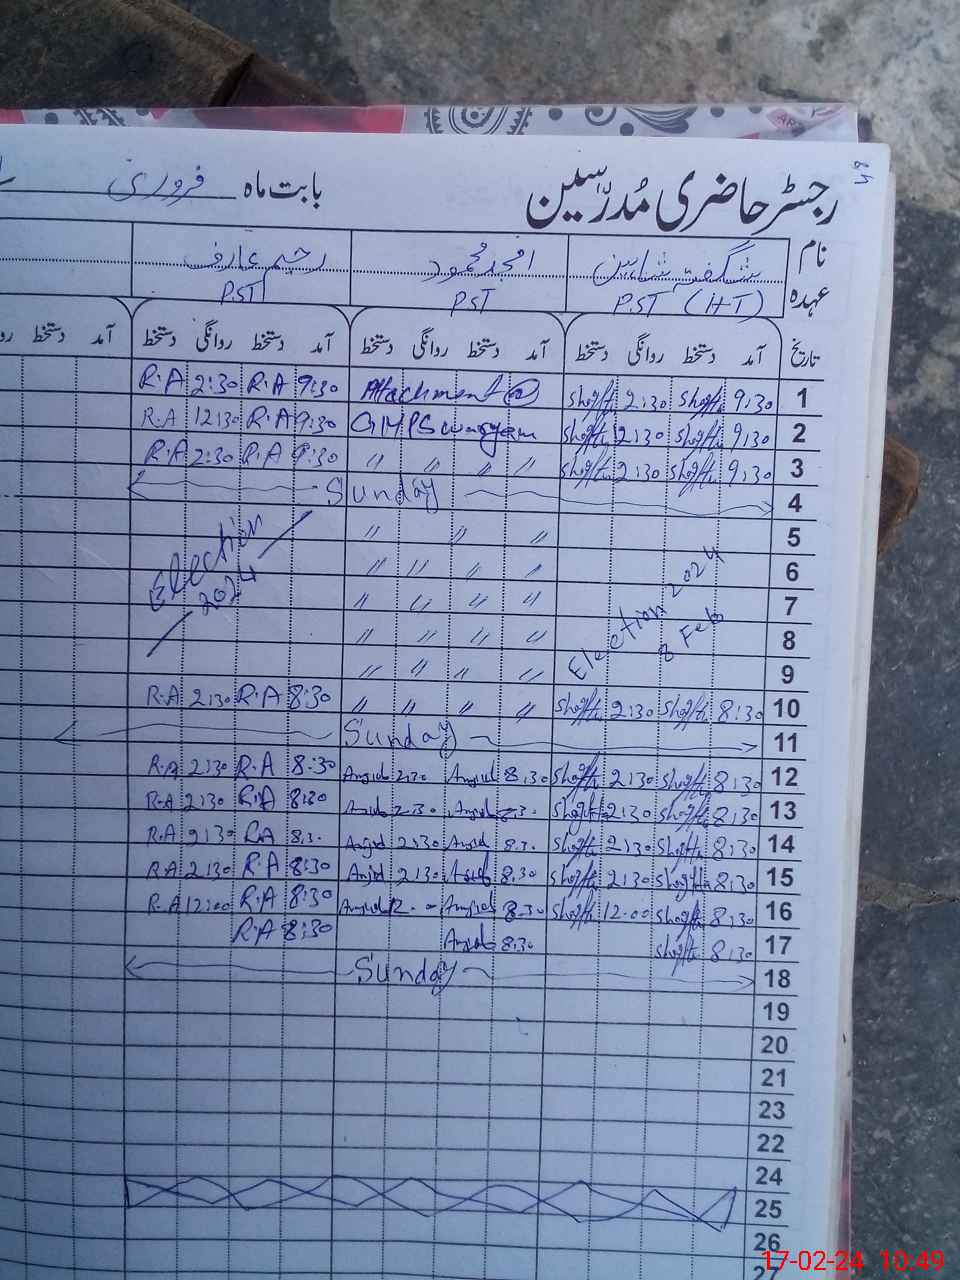 48
رجسٹر حاضری مُدرّسین بابت ماہ فروری
نام شگفتہ شاہین امجد محمود رحیم عارف
عہدہ PST (HT) PST PST
تاریخ آمد دستخط روانگی دستخط آمد دستخط روانگی دستخط آمد دستخط روانگی دستخط دستخط
R.A 2:30 R.A 9:30 Attachment @ 2:30 9:30 1
R.A 12:30 R.A 9:30 GMPS 12:30 9:30 2
R.A 2:30 R.A 9:30 " " " " 2:30 9:30 3
Sunday 4
" " " 5
Election 2024 " " " " 6
" " " " 7
" " " " Election 2024 8 Feb 8
" " " " 9
R.A 2:30 R.A 8:30 " " " " 2:30 8:30 10
Sunday 11
R.A 2:30 R.A 8:30 Amjad 2:30 Amjad 8:30 2:30 8:30 12
R.A 2:30 R.A 8:30 Amjad 2:30 Amjad 8:30 2:30 8:30 13
R.A 2:30 R.A 8:30 Amjad 2:30 Amjad 8:30 2:30 8:30 14
R.A 2:30 R.A 8:30 Amjad 2:30 Amjad 8:30 2:30 8:30 15
R.A 12:00 R.A 8:30 Amjad 12:00 Amjad 8:30 12:00 8:30 16
R.A 8:30 Amjad 8:30 8:30 17
Sunday 18
19
20
21
23
22
24
25
26
27
17-02-24 10:49